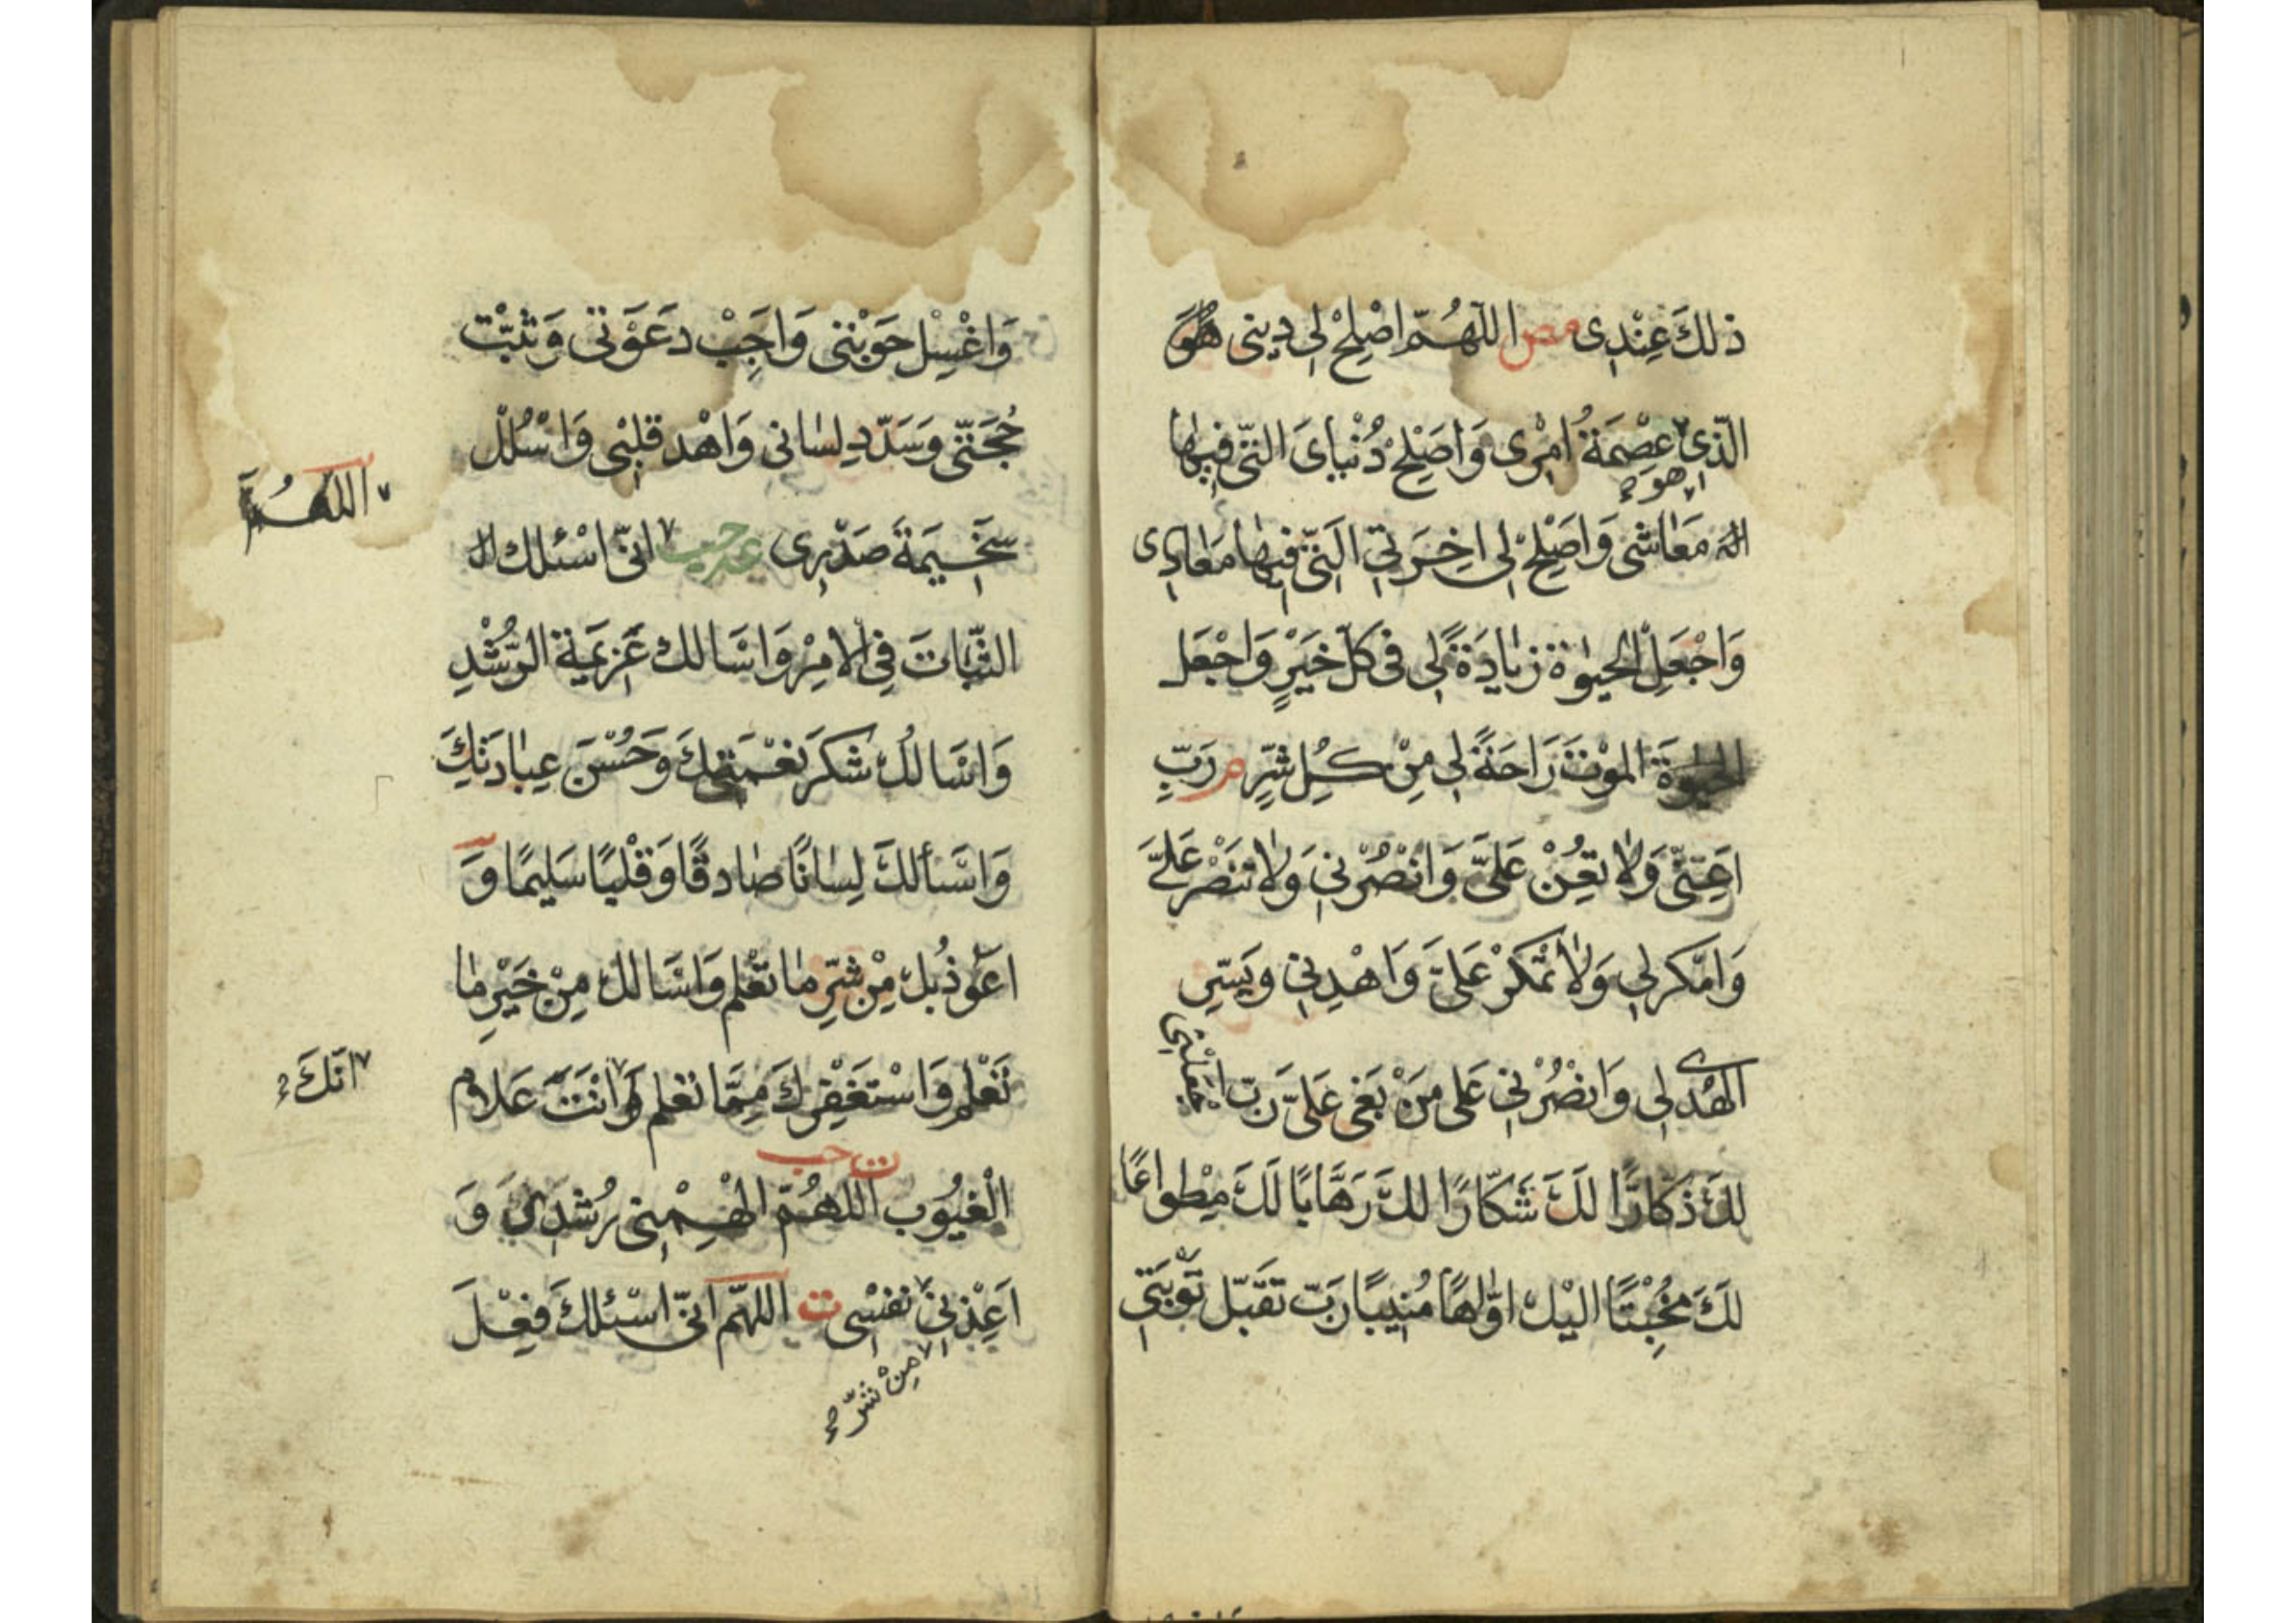 ذلكَ عِنْدِى مص اللّهُمَّ اصْلِحْ لِى دِينِى هُوَ
الّذِى عِصْمَةُ امْرِى وَاَصْلِحْ دُنْيَاىَ الّتِى فِيهَا
هو
مَعَاشِى وَاَصْلِحْ لِى اخِرَتِى الَّتِى فِيهَا مَعَادِى
وَاجْعَلِ الحَيٰوةَ زِيَادَةً لِى فى كلّ خَيْرٍ وَاجْعَل
الحيوةَ المَوْتَ رَاحَةً لِى مِنْ كُلِّ شَرٍّ مر رَبِّ
اَعِنِّى وَلَا تُعِنْ عَلَىَّ وَانْصُرْنِى وَلَا تَنْصُرْ عَلَىَّ
وَامْكُر لِى وَلَا تَمْكُرْ عَلَىَّ وَاهْدِنِى وَيَسِّرِ
الهُدى لِى وَانْصُرْنِى عَلى مَنْ بَغى عَلَىَّ رَبّ اجْعَلْنِى
لَكَ ذَكَّارًا لَكَ شَكَّارًا لَكَ رَهَّابًا لَكَ مِطْوَاعًا
لَكَ مُخْبِتًا اليْكَ اوّاهًا مُنِيبًا رَبّ تَقَبّلْ تَوْبَتِى
وَاغْسِلْ حَوْبَتِى وَاَجِبْ دَعَوْتى وَثَبِّتْ
حُجَّتِى وَسَدِّدْ لِسَانى وَاهْد قلبِى وَاسْلُلْ
سَخِيمَةَ صَدْرِى عه حب انّى اسْئلك
اللّهُمَّ
الثّبَاتَ فِى الامْرِ وَاَسْالك عَزِيمَةَ الرُّشْدِ
وَاَسْالُكَ شكرَ نِعْمَتِكَ وَحُسْنَ عِبَادَتِكَ
وَاَسْألكَ لِسَانًا صَادقًا وَقَلْبًا سَلِيمًا وَ
اَعُوذُ بِكَ مِنْ شَرِّ مَا تَعْلم وَاَسْالكَ مِنْ خَيْرِ مَا
تَعْلم وَاسْتَغْفِرُكَ مِمَّا تعْلم وَانْتَ عَلام
انَّكَ
ت حب
الْغُيُوبِ اللّهُمّ الْهِمْنِى رُشْدِى وَ
اَعِذْنِى نَفْسِى ت اللهّم انّى اسْئلكَ فِعْلَ
مِنْ شَرّ